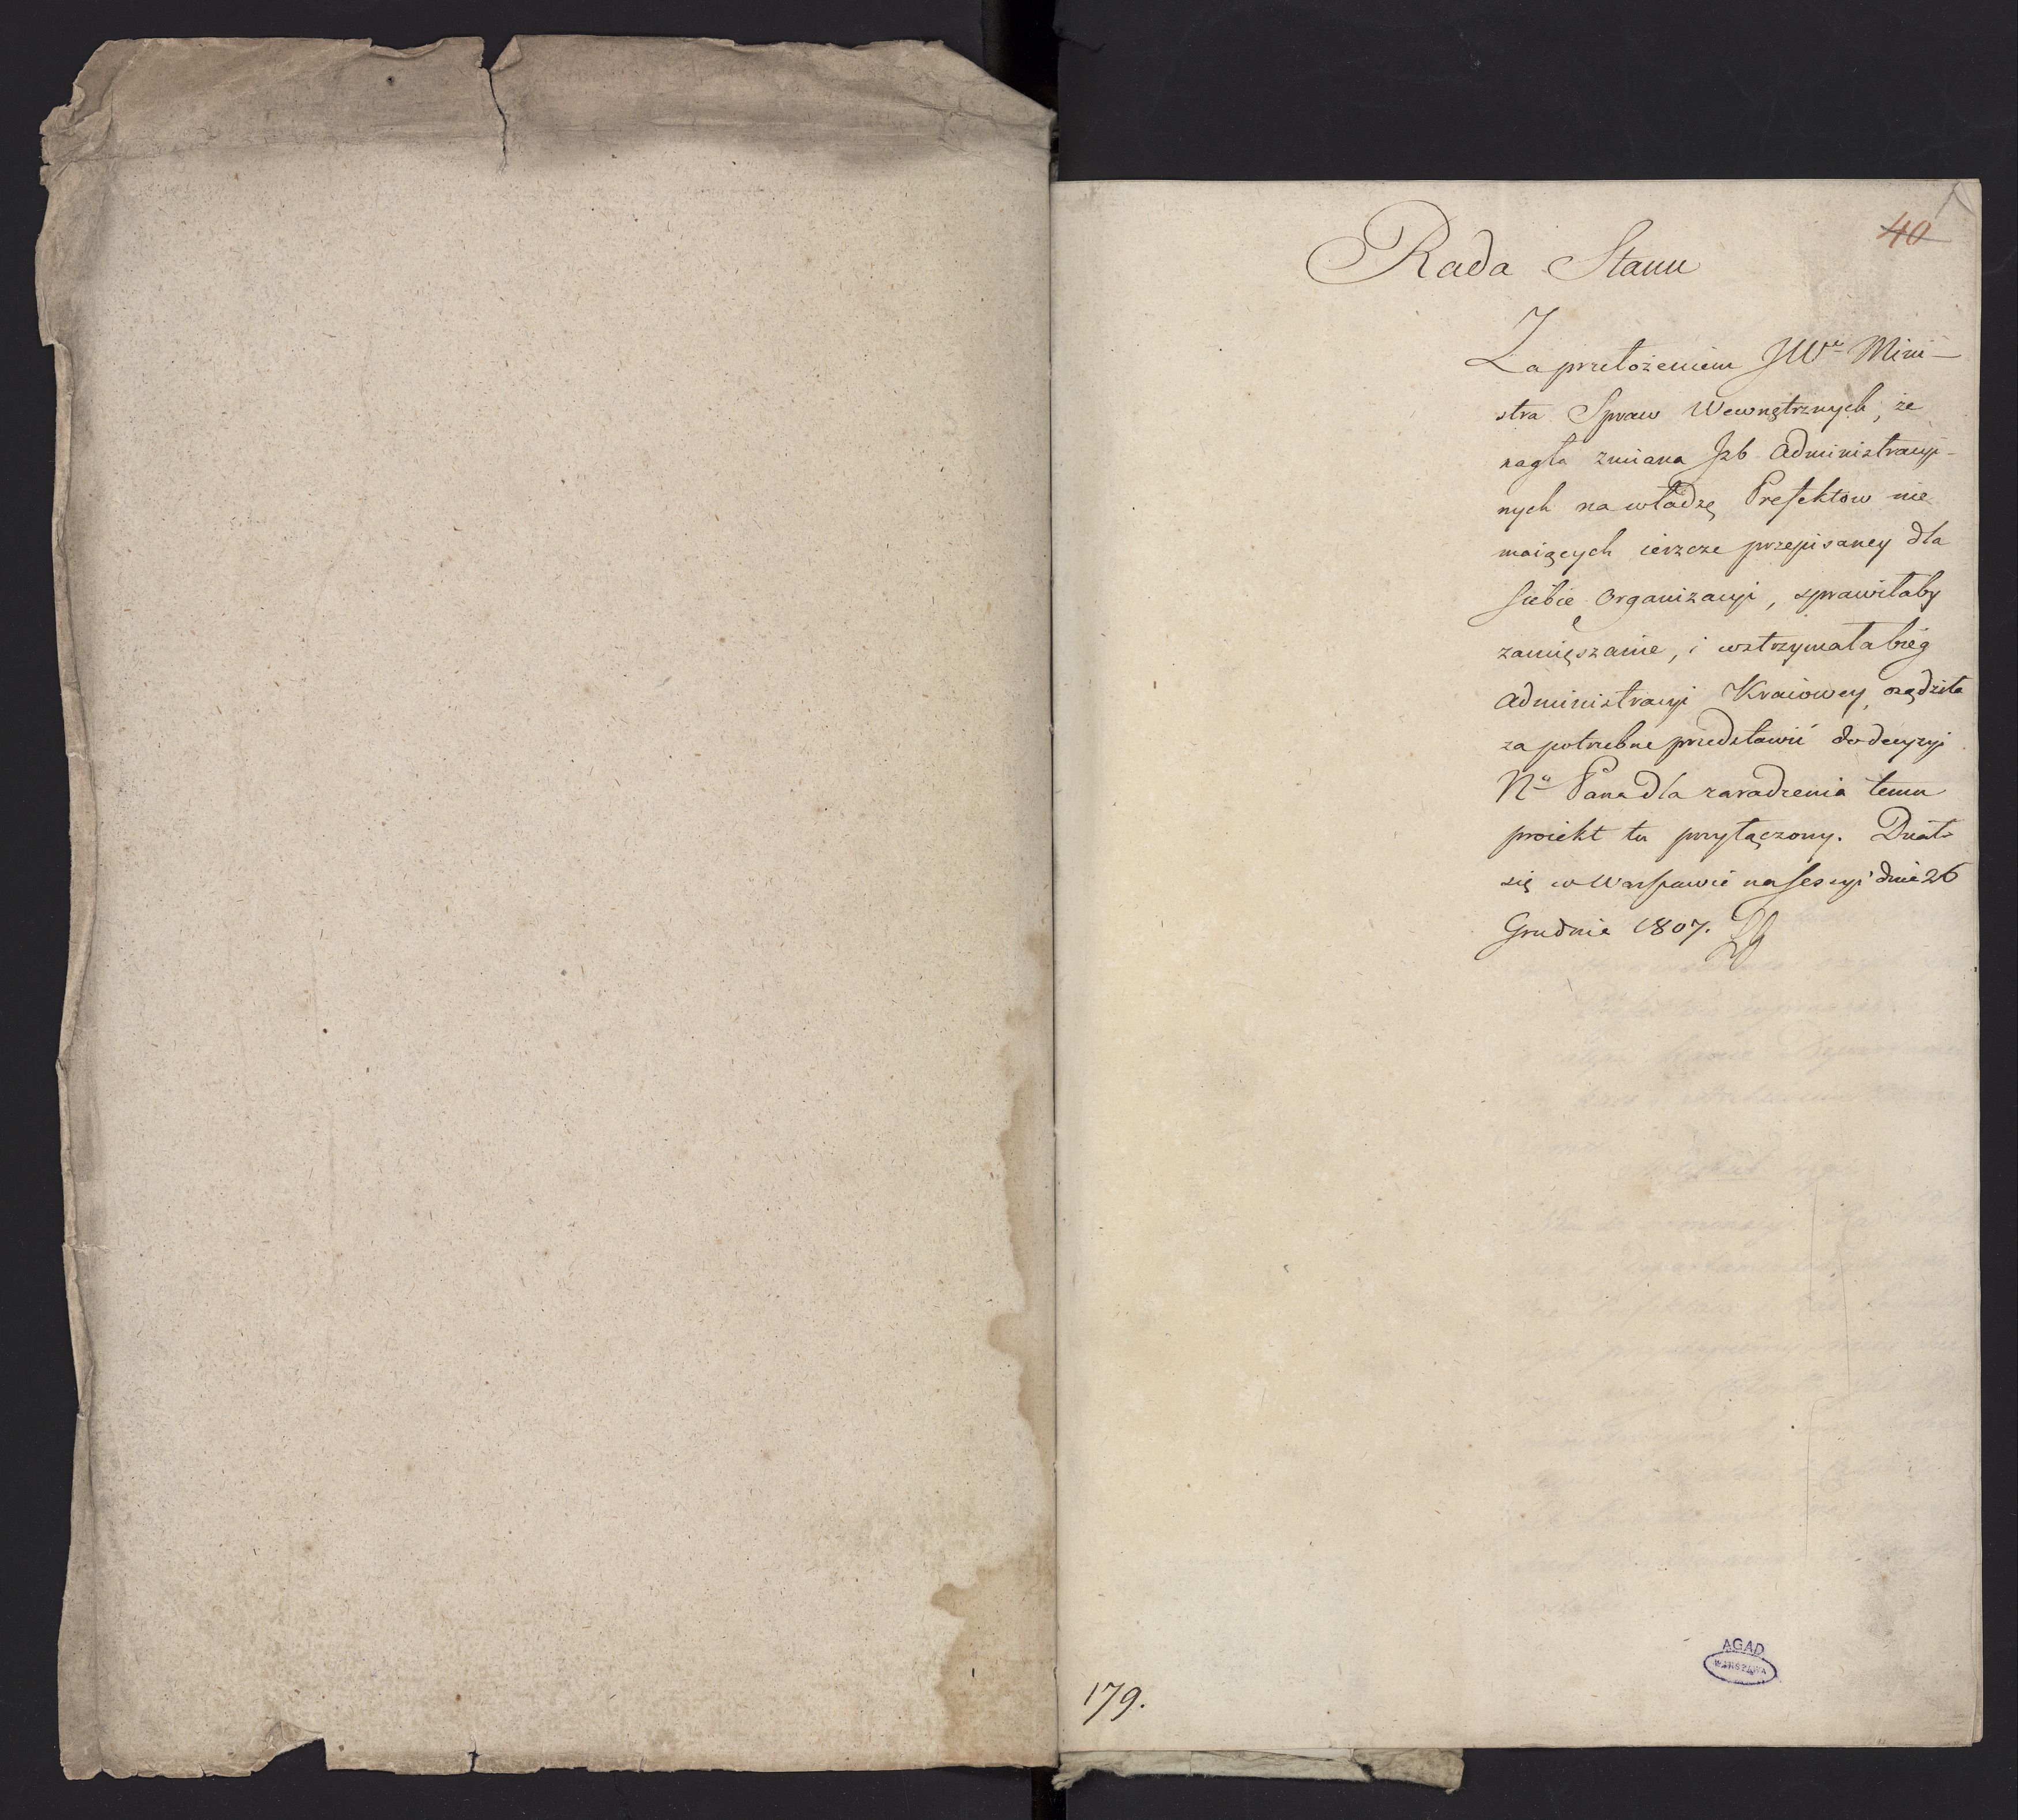 40
Rada Stanu
Za przełożeniem JWo Mini-
stra Spraw Wewnętrznych, że
nagła zmiana Jzb Administracyi-
nych na władzę Prefektow nie
maiących ieszcze przepisaney dla
siebie Organizacyi, sprawiłaby
zamięszanie, i wstrzymała bieg
Administracyi Kraiowey, osądziła
za potrzebne przedstawić do decyzyi
No Pana dla zaradzenia temu
proiekt tu przyłączony. Działo
się w Warszawie na Sessyi dnia 26
Grudnia 1807.
AGAD
WARSZAWA
179.